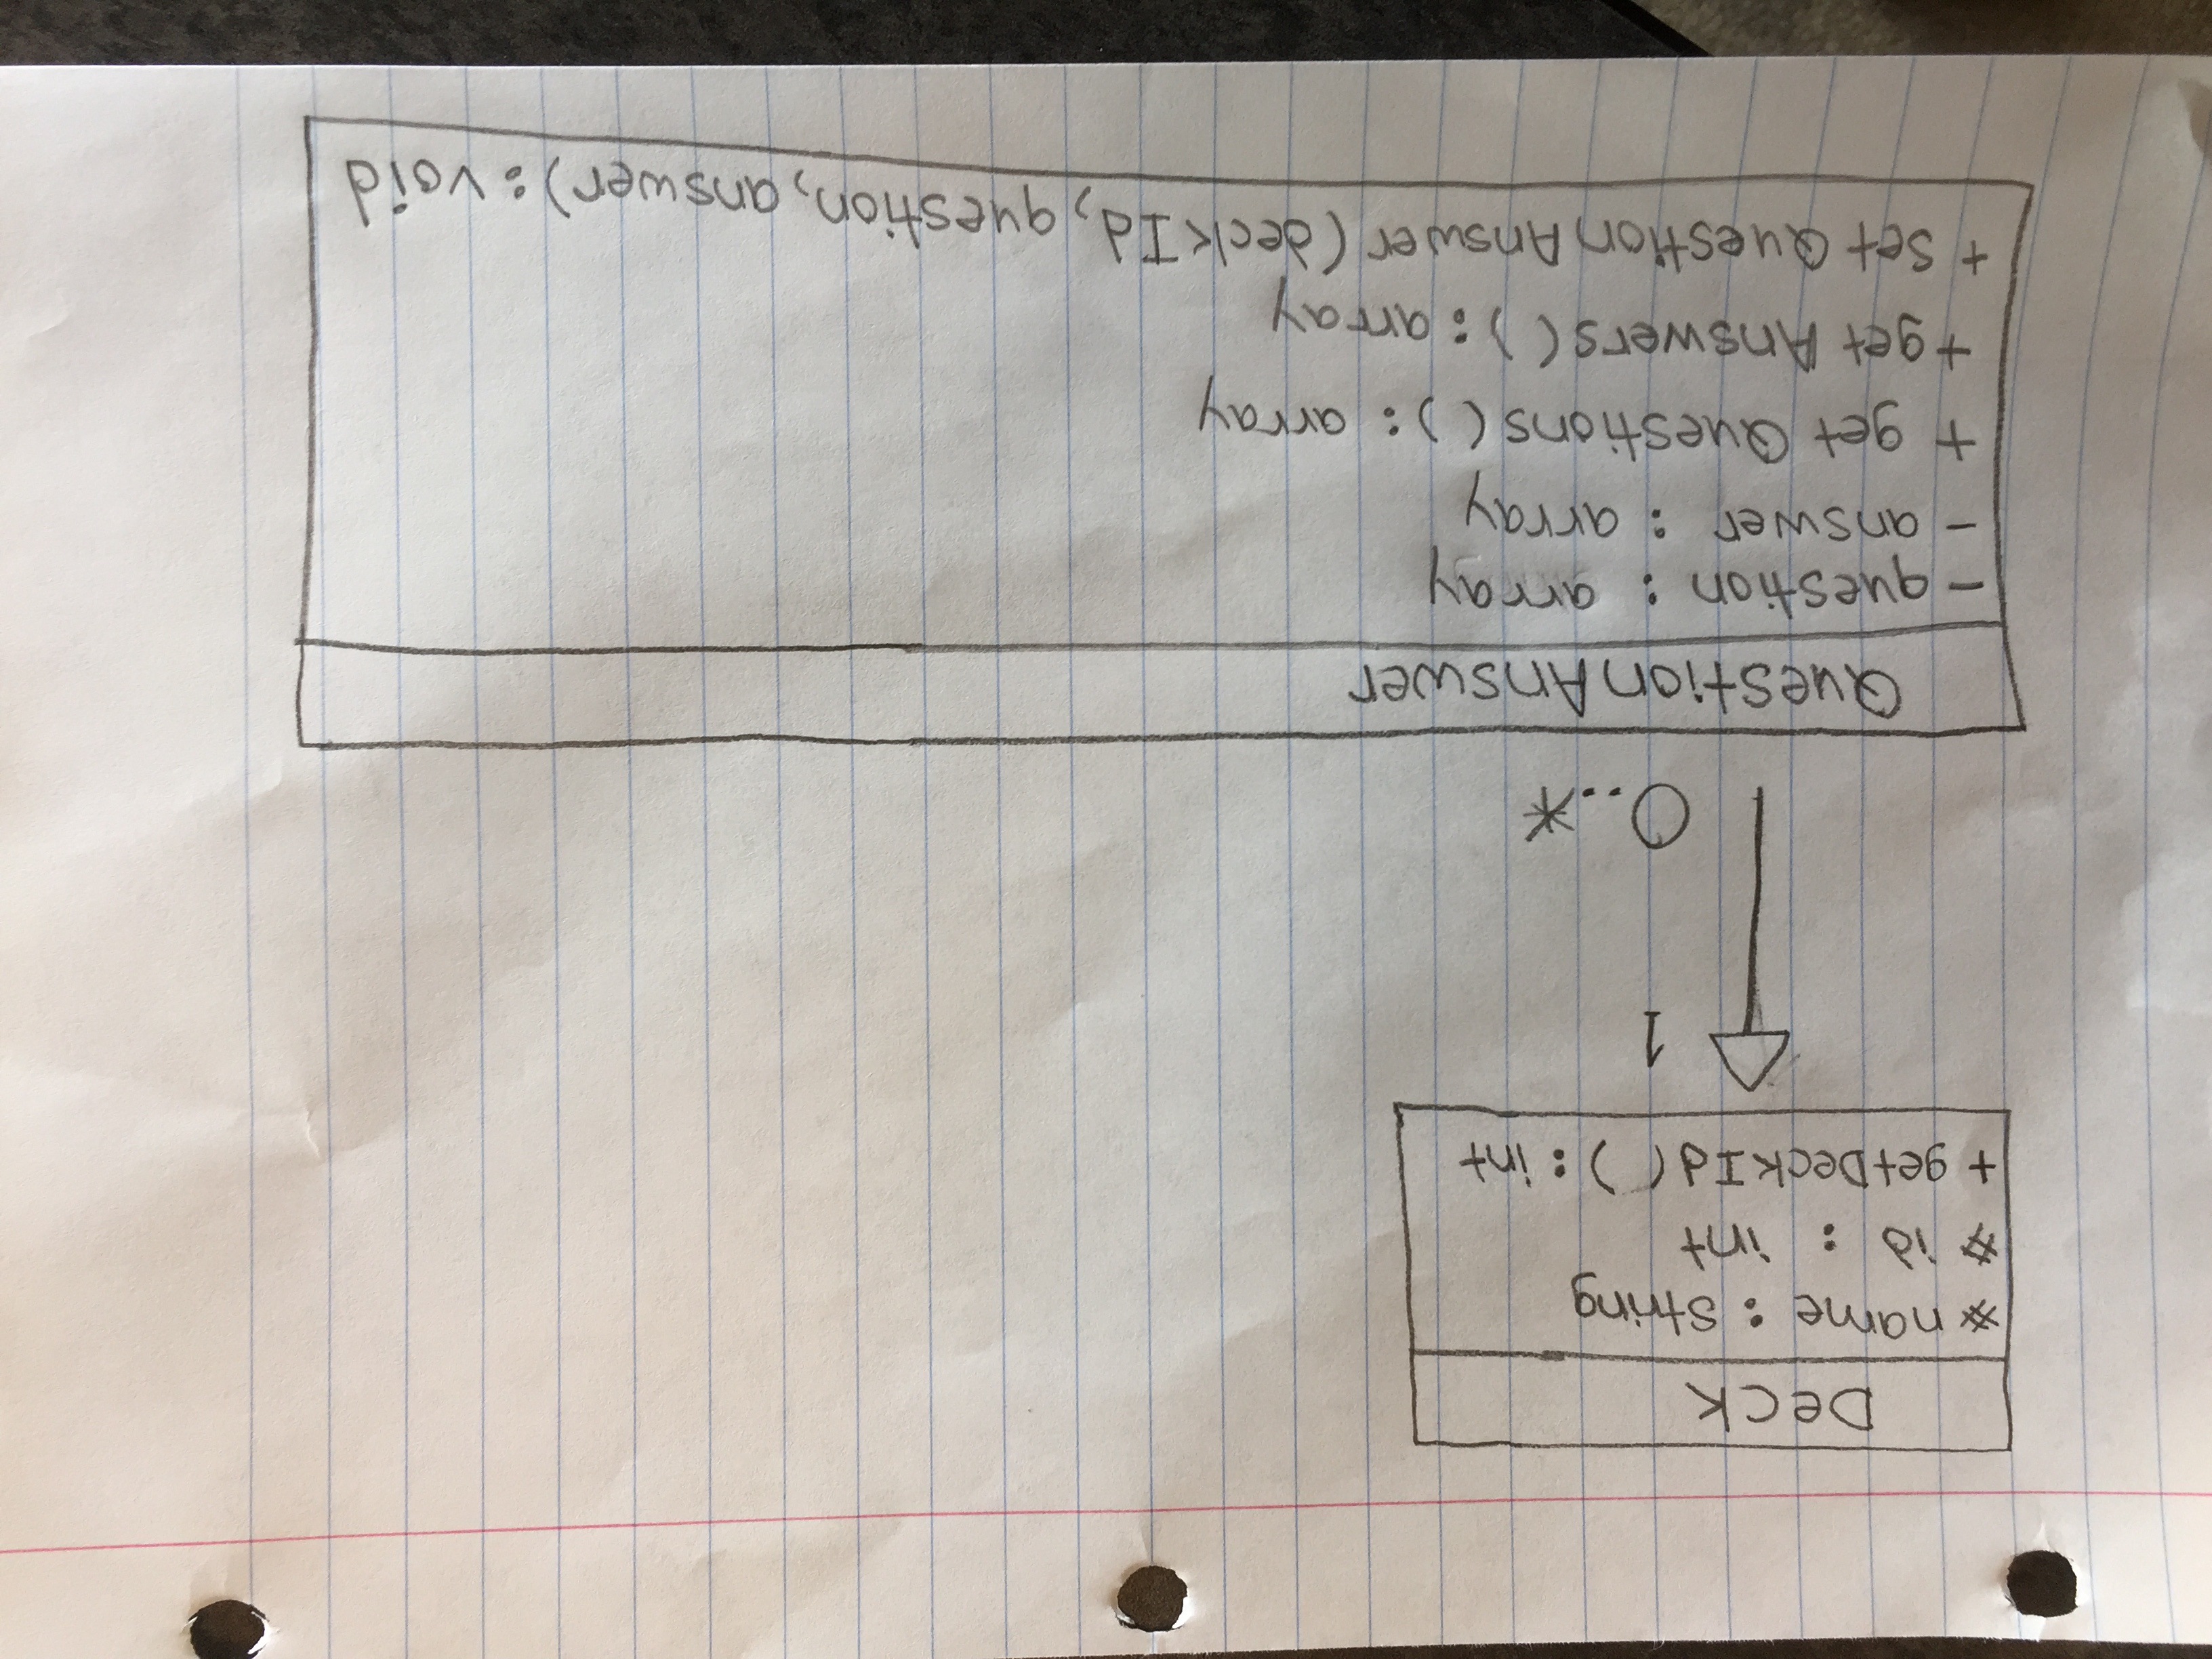 Deck
# name : string
# id : int
+ getDeckId( ) : int
1
0..*
QuestionAnswer
- question : array
- answer : array
+ get Questions( ) : array
+ get Answers( ) : array
+ set QuestionAnswer (deckId, question, answer) : void